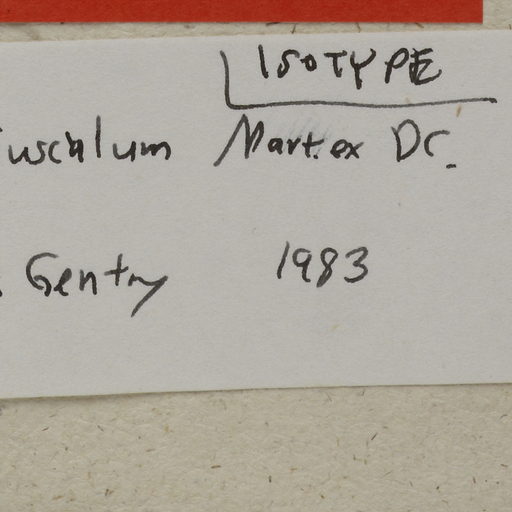 ISOTYPE
uschlum Mart. ex DC.
. Gentry 1983